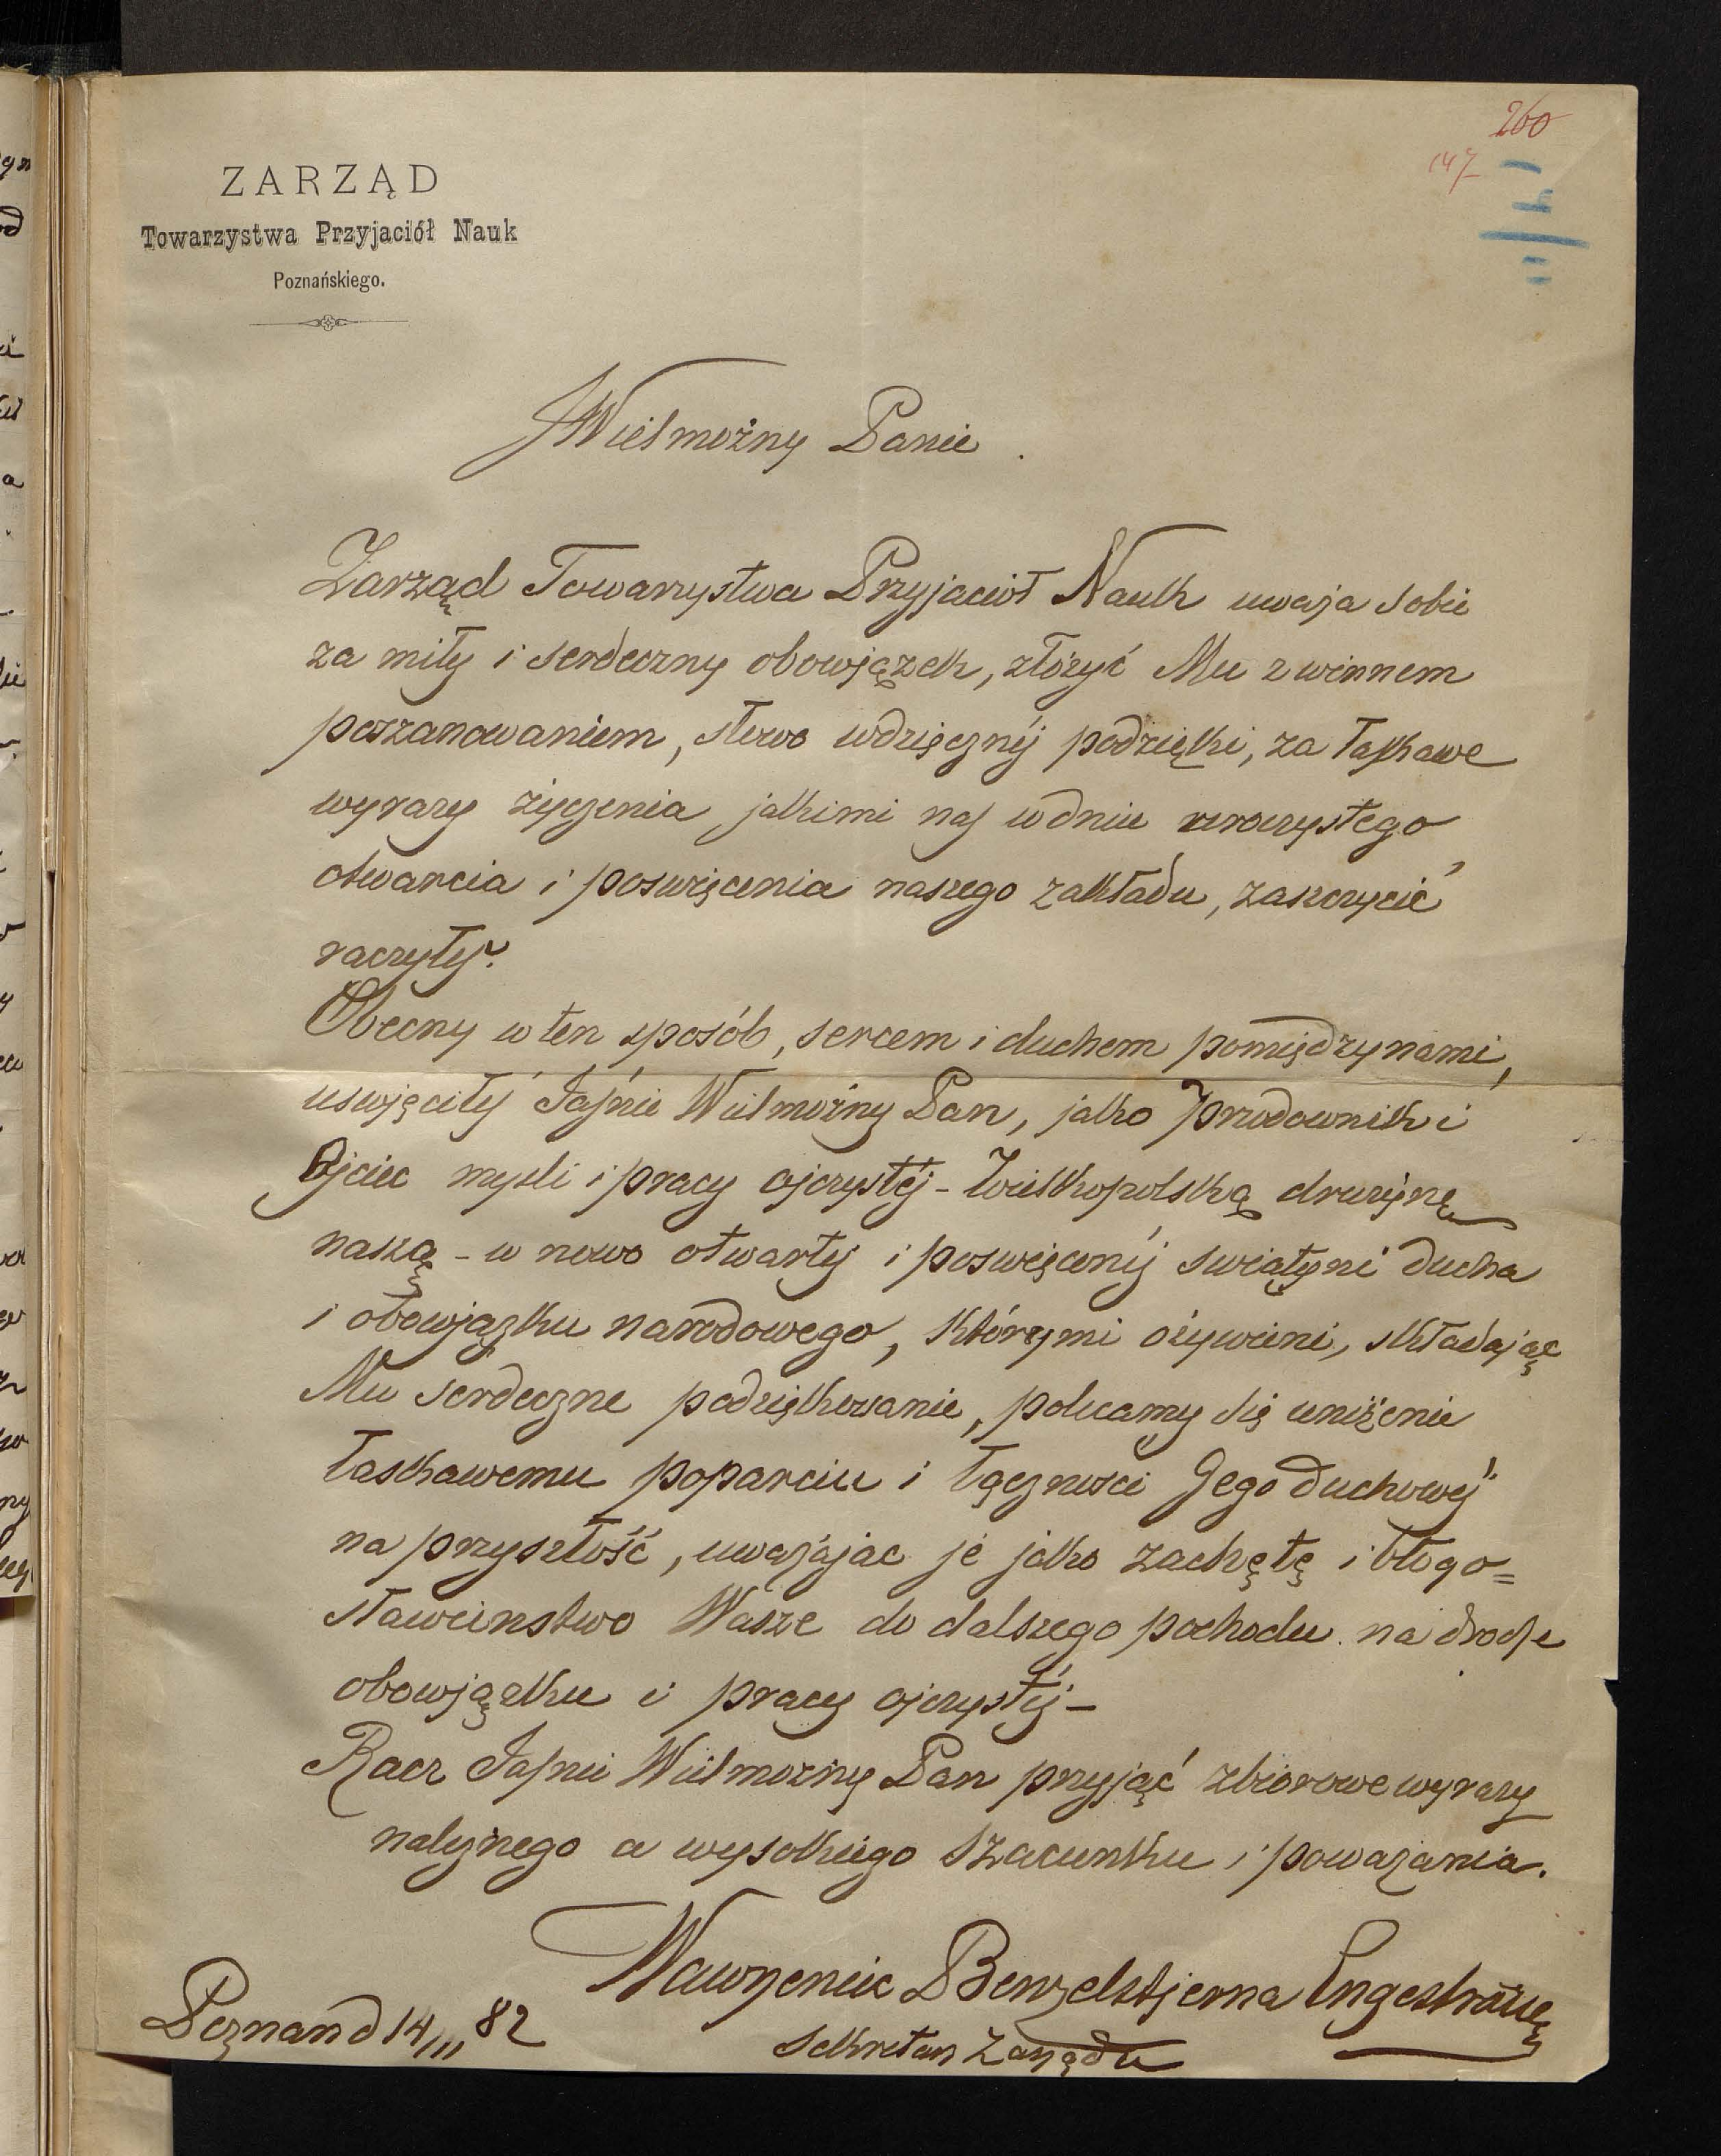 260
147
ZARZĄD
Towarzystwa Przyjaciół Nauk
Poznańskiego.
Wielmożny Panie.
Zarząd Towarzystwa Przyjaciół Nauk uważa sobie
za miły i serdeczny obowjązek, złóżyć Mu z winnem
poszanowaniem, słowo wdzięcznéj podzięki, za łaskawe
wyrazy życzenia jakimi nas w dniu uroczystego
otwarcia i poswięcenia naszego zakładu, zaszczycić
raczyłeś.
Obecny w ten sposób, sercem i duchem pomiędzy nami,
uswjęciłeś Jaśnie Wielmożny Pan, jako przodownik i
Ojciec mysli i pracy ojczystéj - Wielkopolską drużynę
naszą - w nowo otwartej i poswięconéj swiątyni ducha
i obowjązku narodowego, którymi ożywieni, składając
Mu serdeczne podziękowanie, polecamy się uniżenie
łaskawemu poparciu i łączności Jego duchowéj
na przyszłość, uważając je jako zachętę i błogo=
sławieństwo Wasze do dalszego pochodu na drodze
obowjązku i pracy ojczystéj -
Racz Jaśnie Wielmożny Pan przyjąć zbiorowe wyrazy
należnego a wysokiego szacunku i poważania.
Wawrzeniec Benzelstjerna Engeström
Sekretarz Zarządu
Poznań d 14/III 82